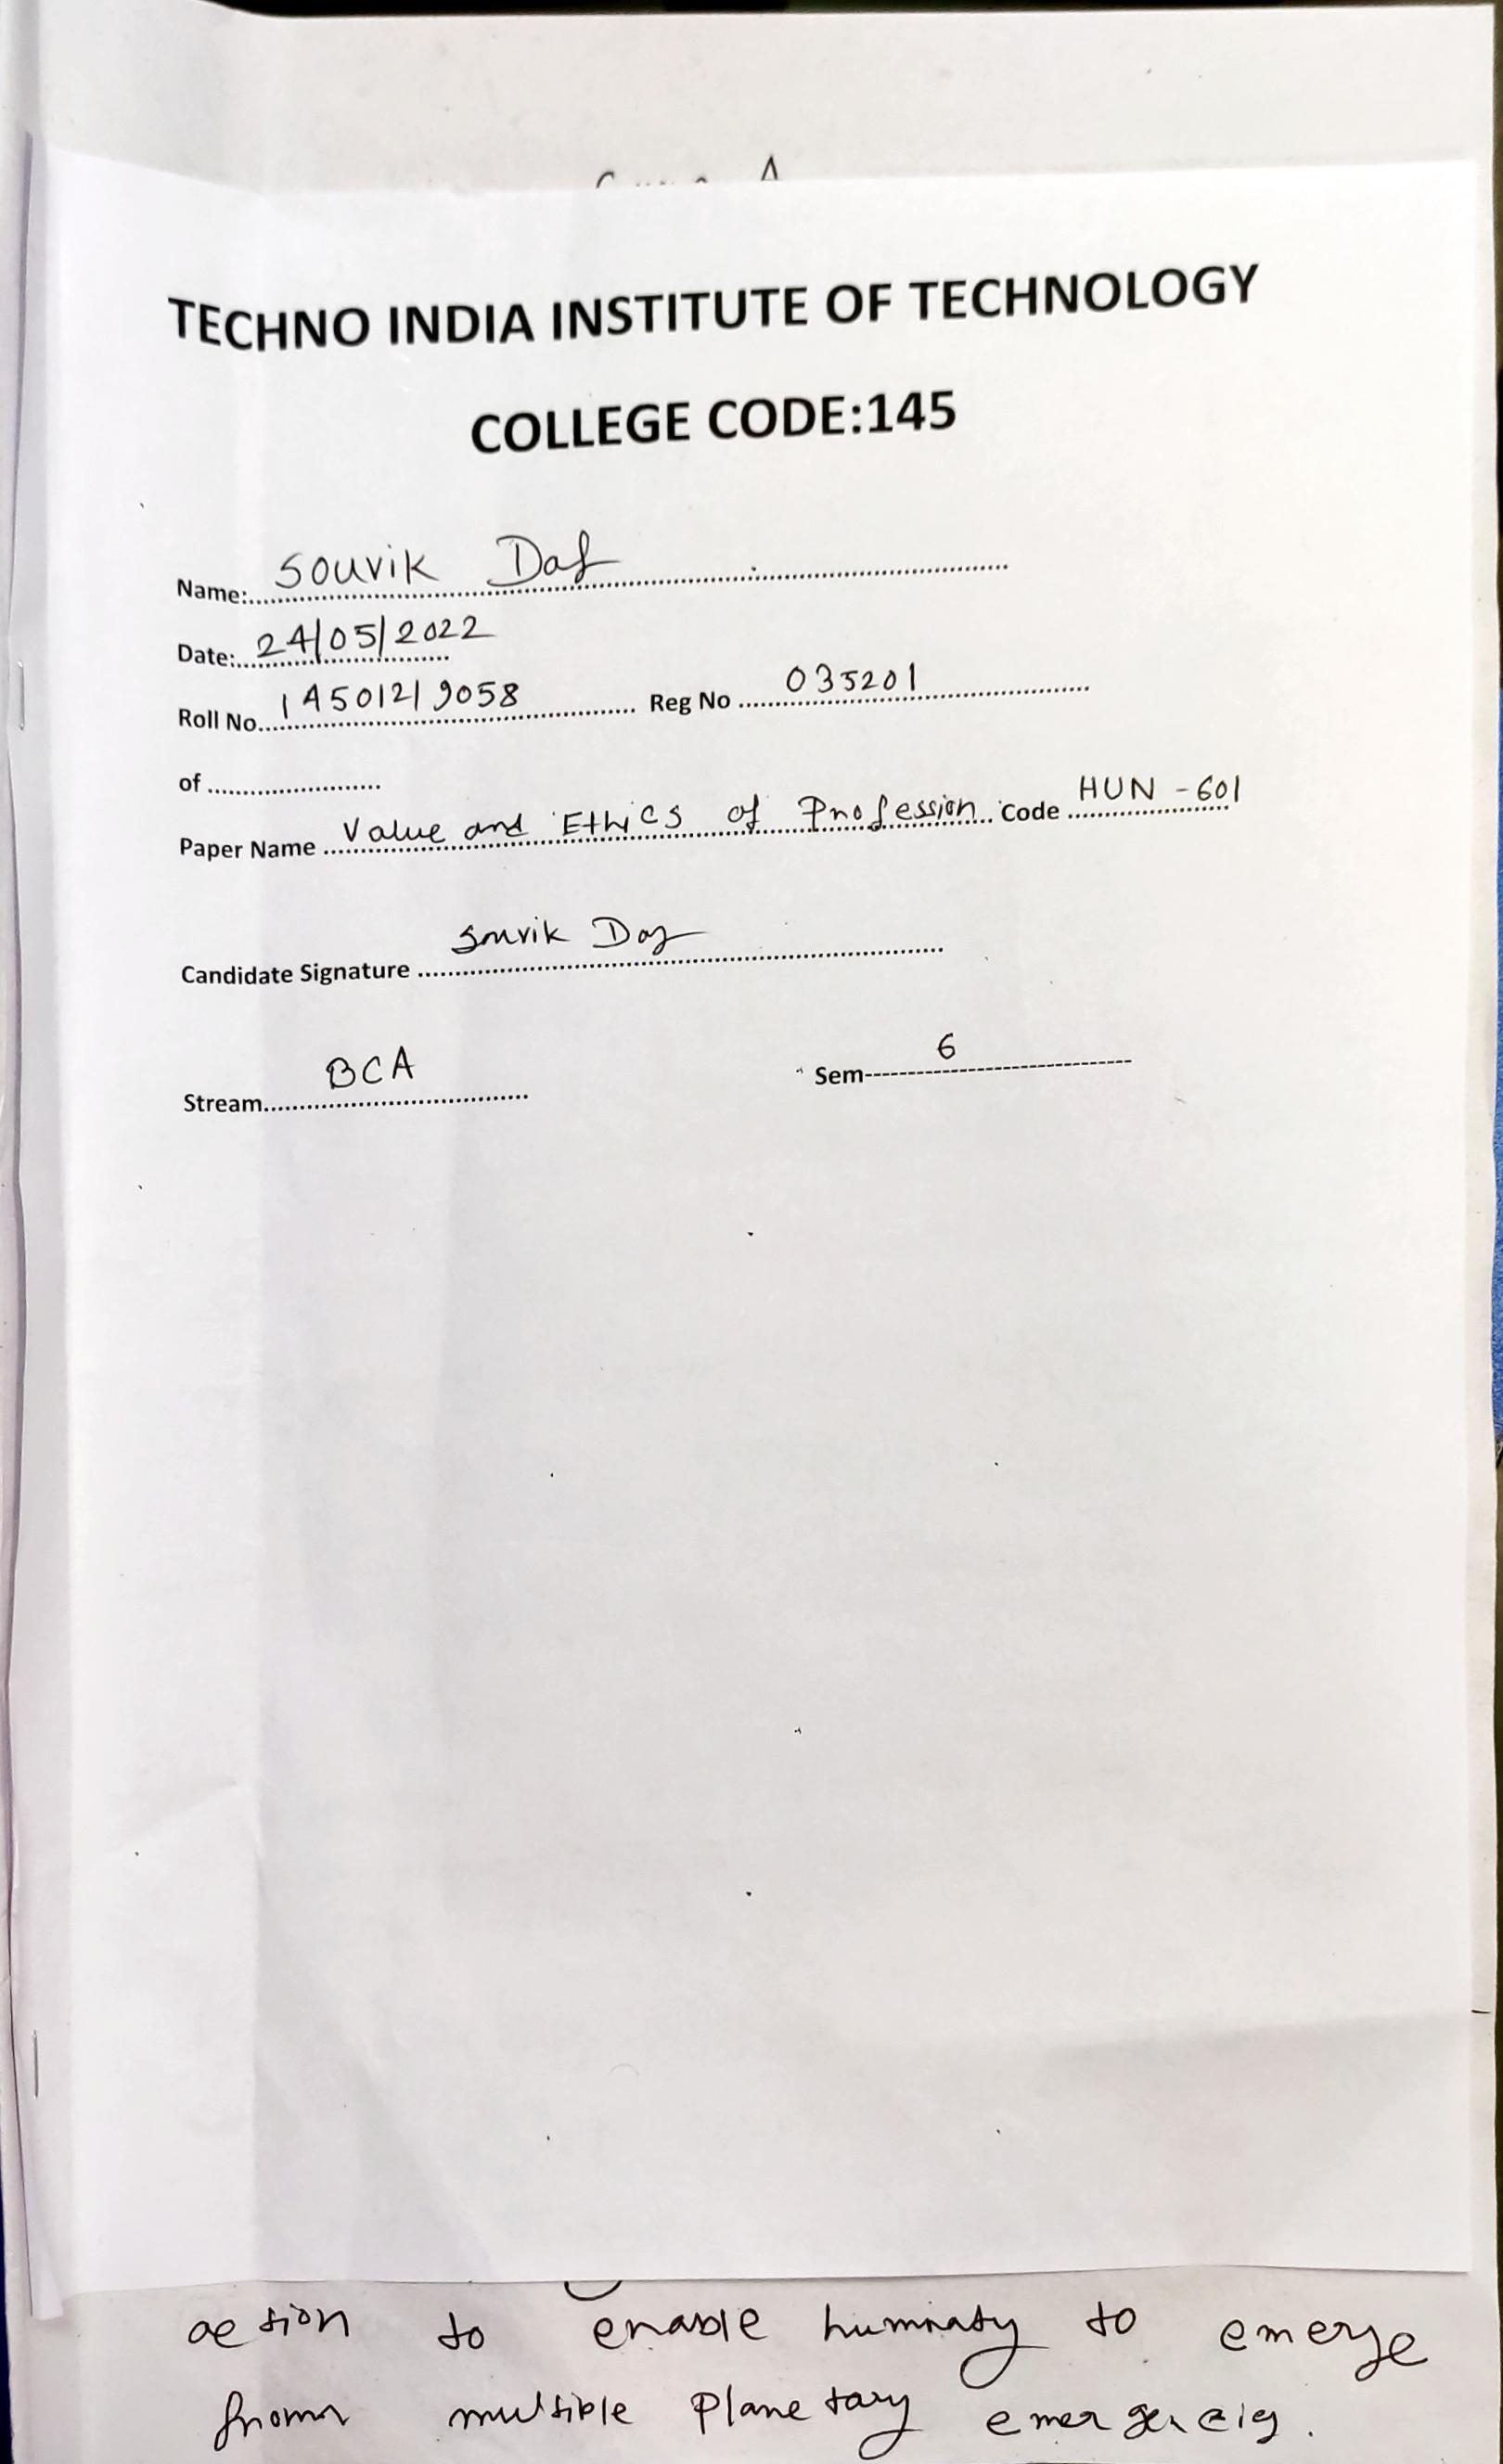 TECHNO INDIA INSTITUTE OF TECHNOLOGY
COLLEGE CODE:145
Name: Souvik Das
Date: 24/05/2022
Roll No. 14501219058 Reg No 035201
of
Paper Name Value and Ethics of Profession Code HUN - 601
Candidate Signature Souvik Das
Stream BCA Sem 6
to enable to emerge
from multiple Planetary